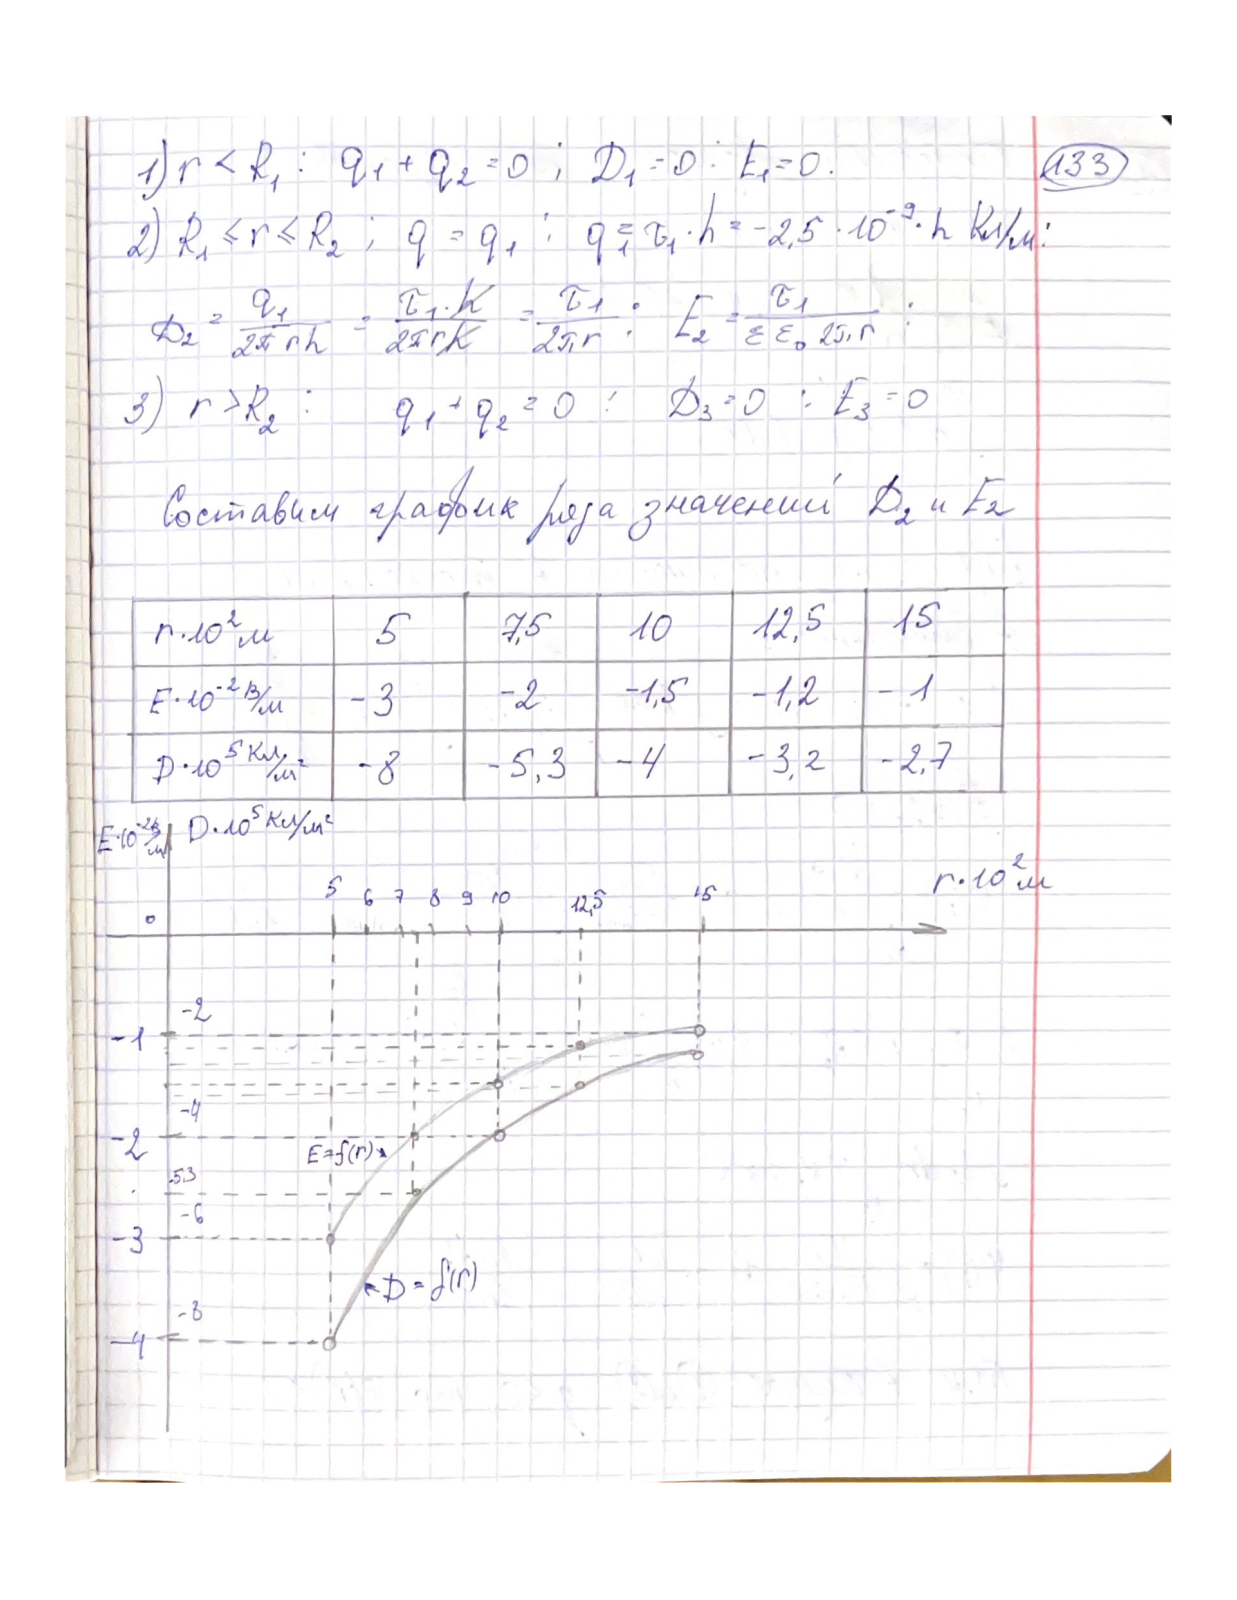 133
1) r < R₁ : q₁ + q₂ = 0 ; D₁ = 0 : E₁ = 0.
2) R₁ ≤ r ≤ R₂ ; q = q₁ ; q₁ = τ₁·h = -2,5·10⁻⁹·h Кл/м :
D₂ = q₁/2πrh = τ₁·h/2πrh = τ₁/2πr ; E₂ = τ₁/εε₀2πr :
3) r > R₂ : q₁ + q₂ = 0 : D₃ = 0 : E₃ = 0
Составим график ряда значений D₂ и E₂
r·10² м 5 7,5 10 12,5 15
E·10⁻² В/м -3 -2 -1,5 -1,2 -1
D·10⁵ Кл/м² -8 -5,3 -4 -3,2 -2,7
E·10⁻² В/м D·10⁵ Кл/м²
r·10² м
5 6 7 8 9 10 12,5 15
0
-2
-1
-4
-2
E=f(r)
-5,3
-6
-3
D=f(r)
-8
-4